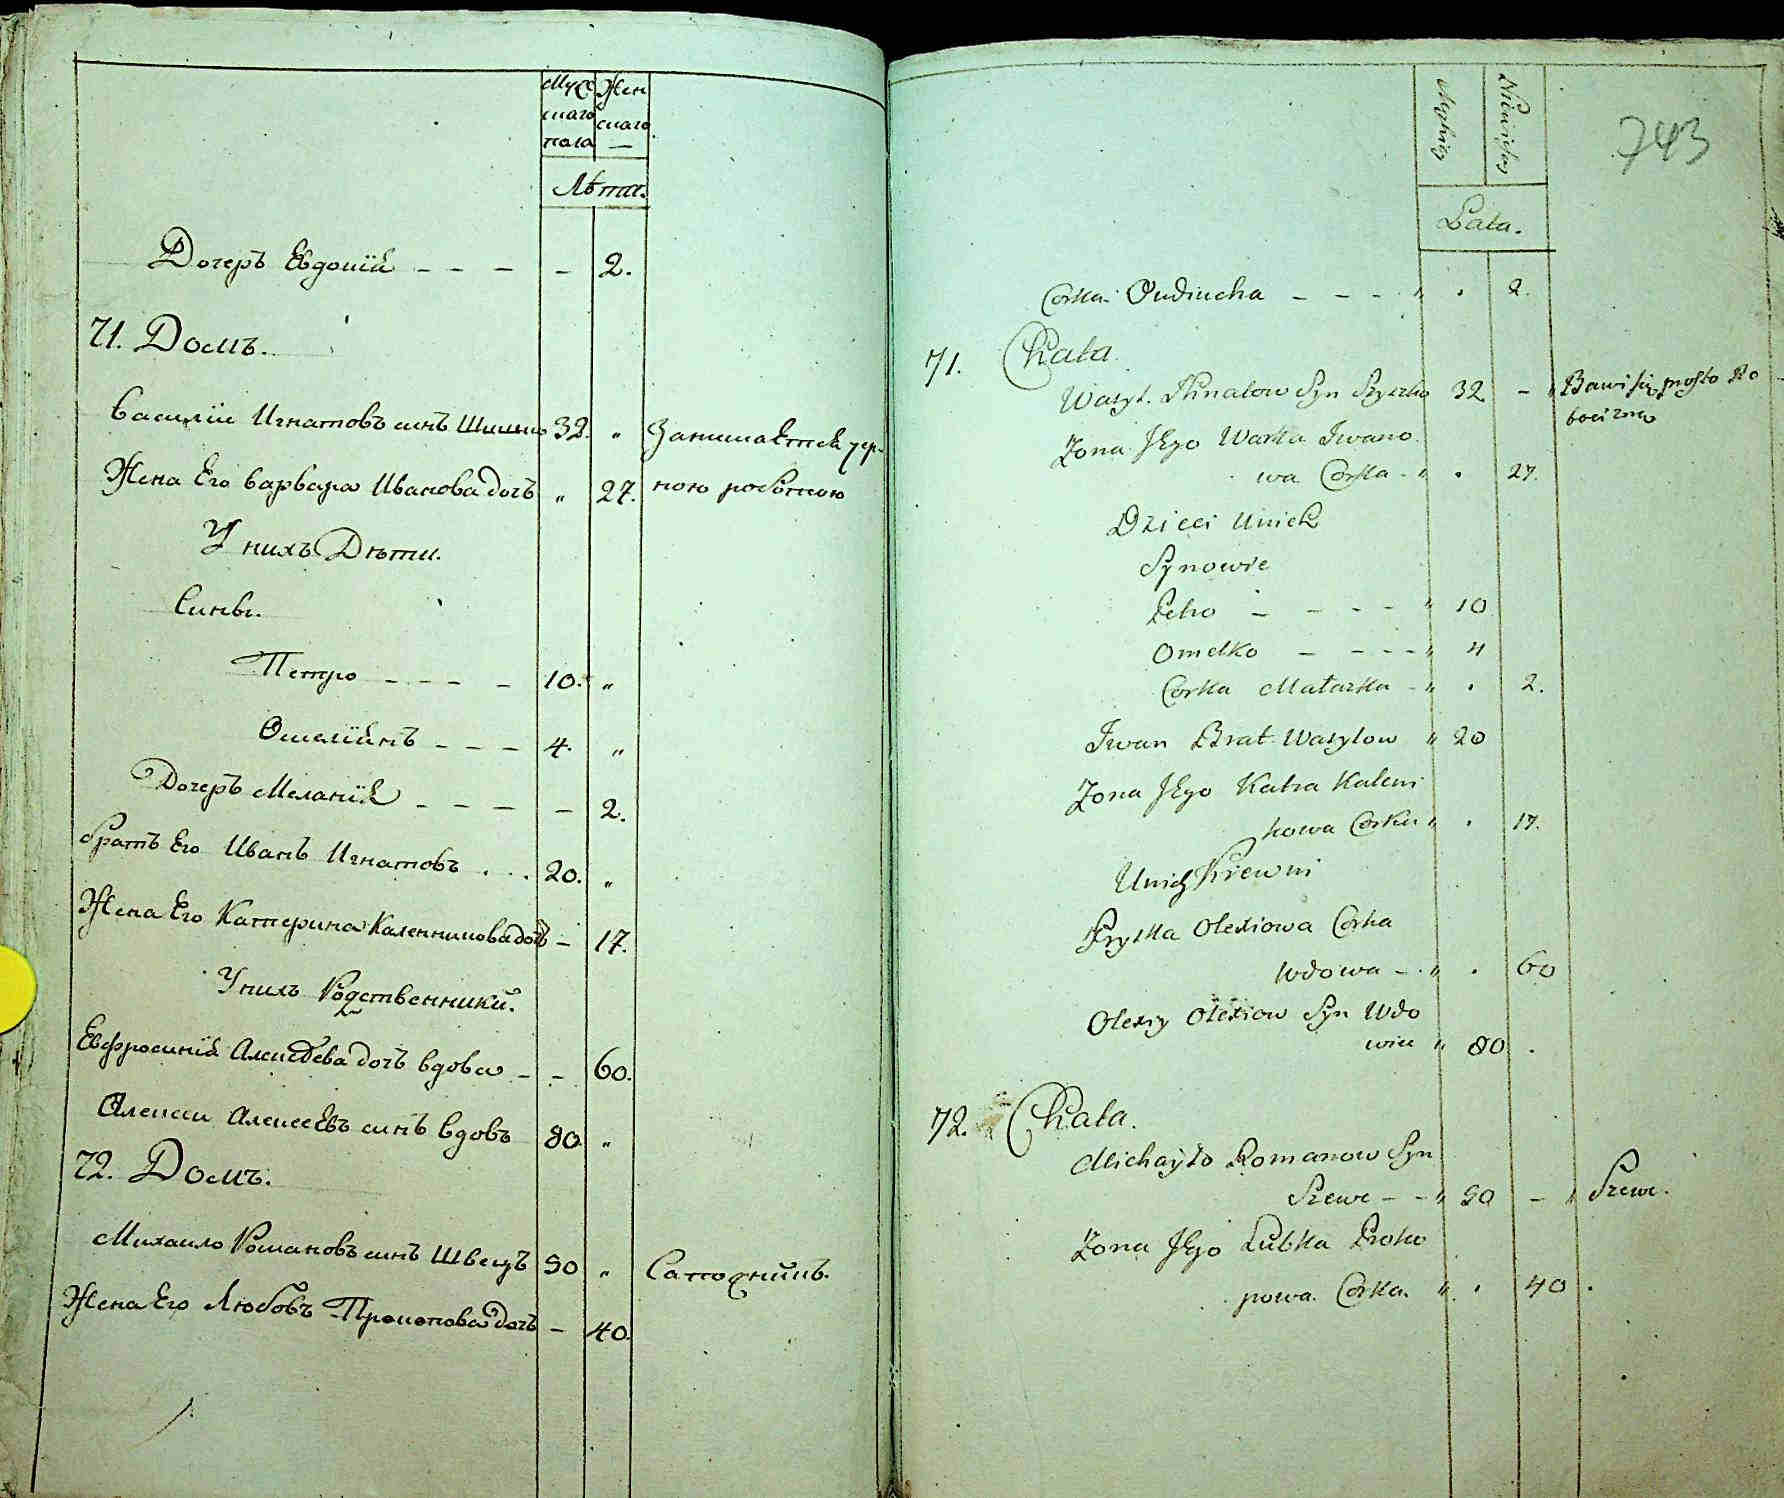 Мужскаго пола
Женскаго —
Лѣта.
Дочерь Евдокія - - - - 2.
71. Домъ.
Василій Игнатовъ синъ Шишко 32. „ Занимается чер-
Жена Его Варвара Иванова дочь „ 27. ною роботою
У нихъ Дѣти.
Сины.
Петро - - - - 10. „
Омеліянъ - - - 4. „
Дочерь Меланія - - - - 2.
братъ Его Иванъ Игнатовъ . . . 20. „
Жена Его Катерина Каленникова дочь - 17.
У нихъ Родственники.
Евфросинія Алексѣева дочь вдова - - 60.
Алексей Алексеевъ синъ вдовъ 80. „
72. Домъ.
Михайло Романовъ синъ Швецъ 50 „ Сапожникъ.
Жена Его Любовъ Прокопова дочь - 40.
743
Lata.
Corka Oudiucha - - - „ . 2.
71. Chata
Wasyl Ihnatow Syn Szyszko 32 - „ Bawi się prosto Ro
bocizną
Zona Jego Warka Iwano
wa Corka - „ . 27.
Dzieci Unich
Synowie
Petro - - - - „ 10
Omelko - - - - „ 4
Corka Małaszka - „ . 2.
Iwan Brat Wasylow „ 20
Zona Jego Katra Kaleni
kowa Corka „ . 17.
Unich Krewni
Pryska Olexiowa Corka
Wdowa - . „ . 60
Olexiy Olexiow Syn Wdo
wiec „ 80 .
72. Chata.
Michayło Romanow Syn
Szewc - - „ 50 - „ Szewc.
Zona Jego Lubka Proko
powa Corka. „ . 40 .